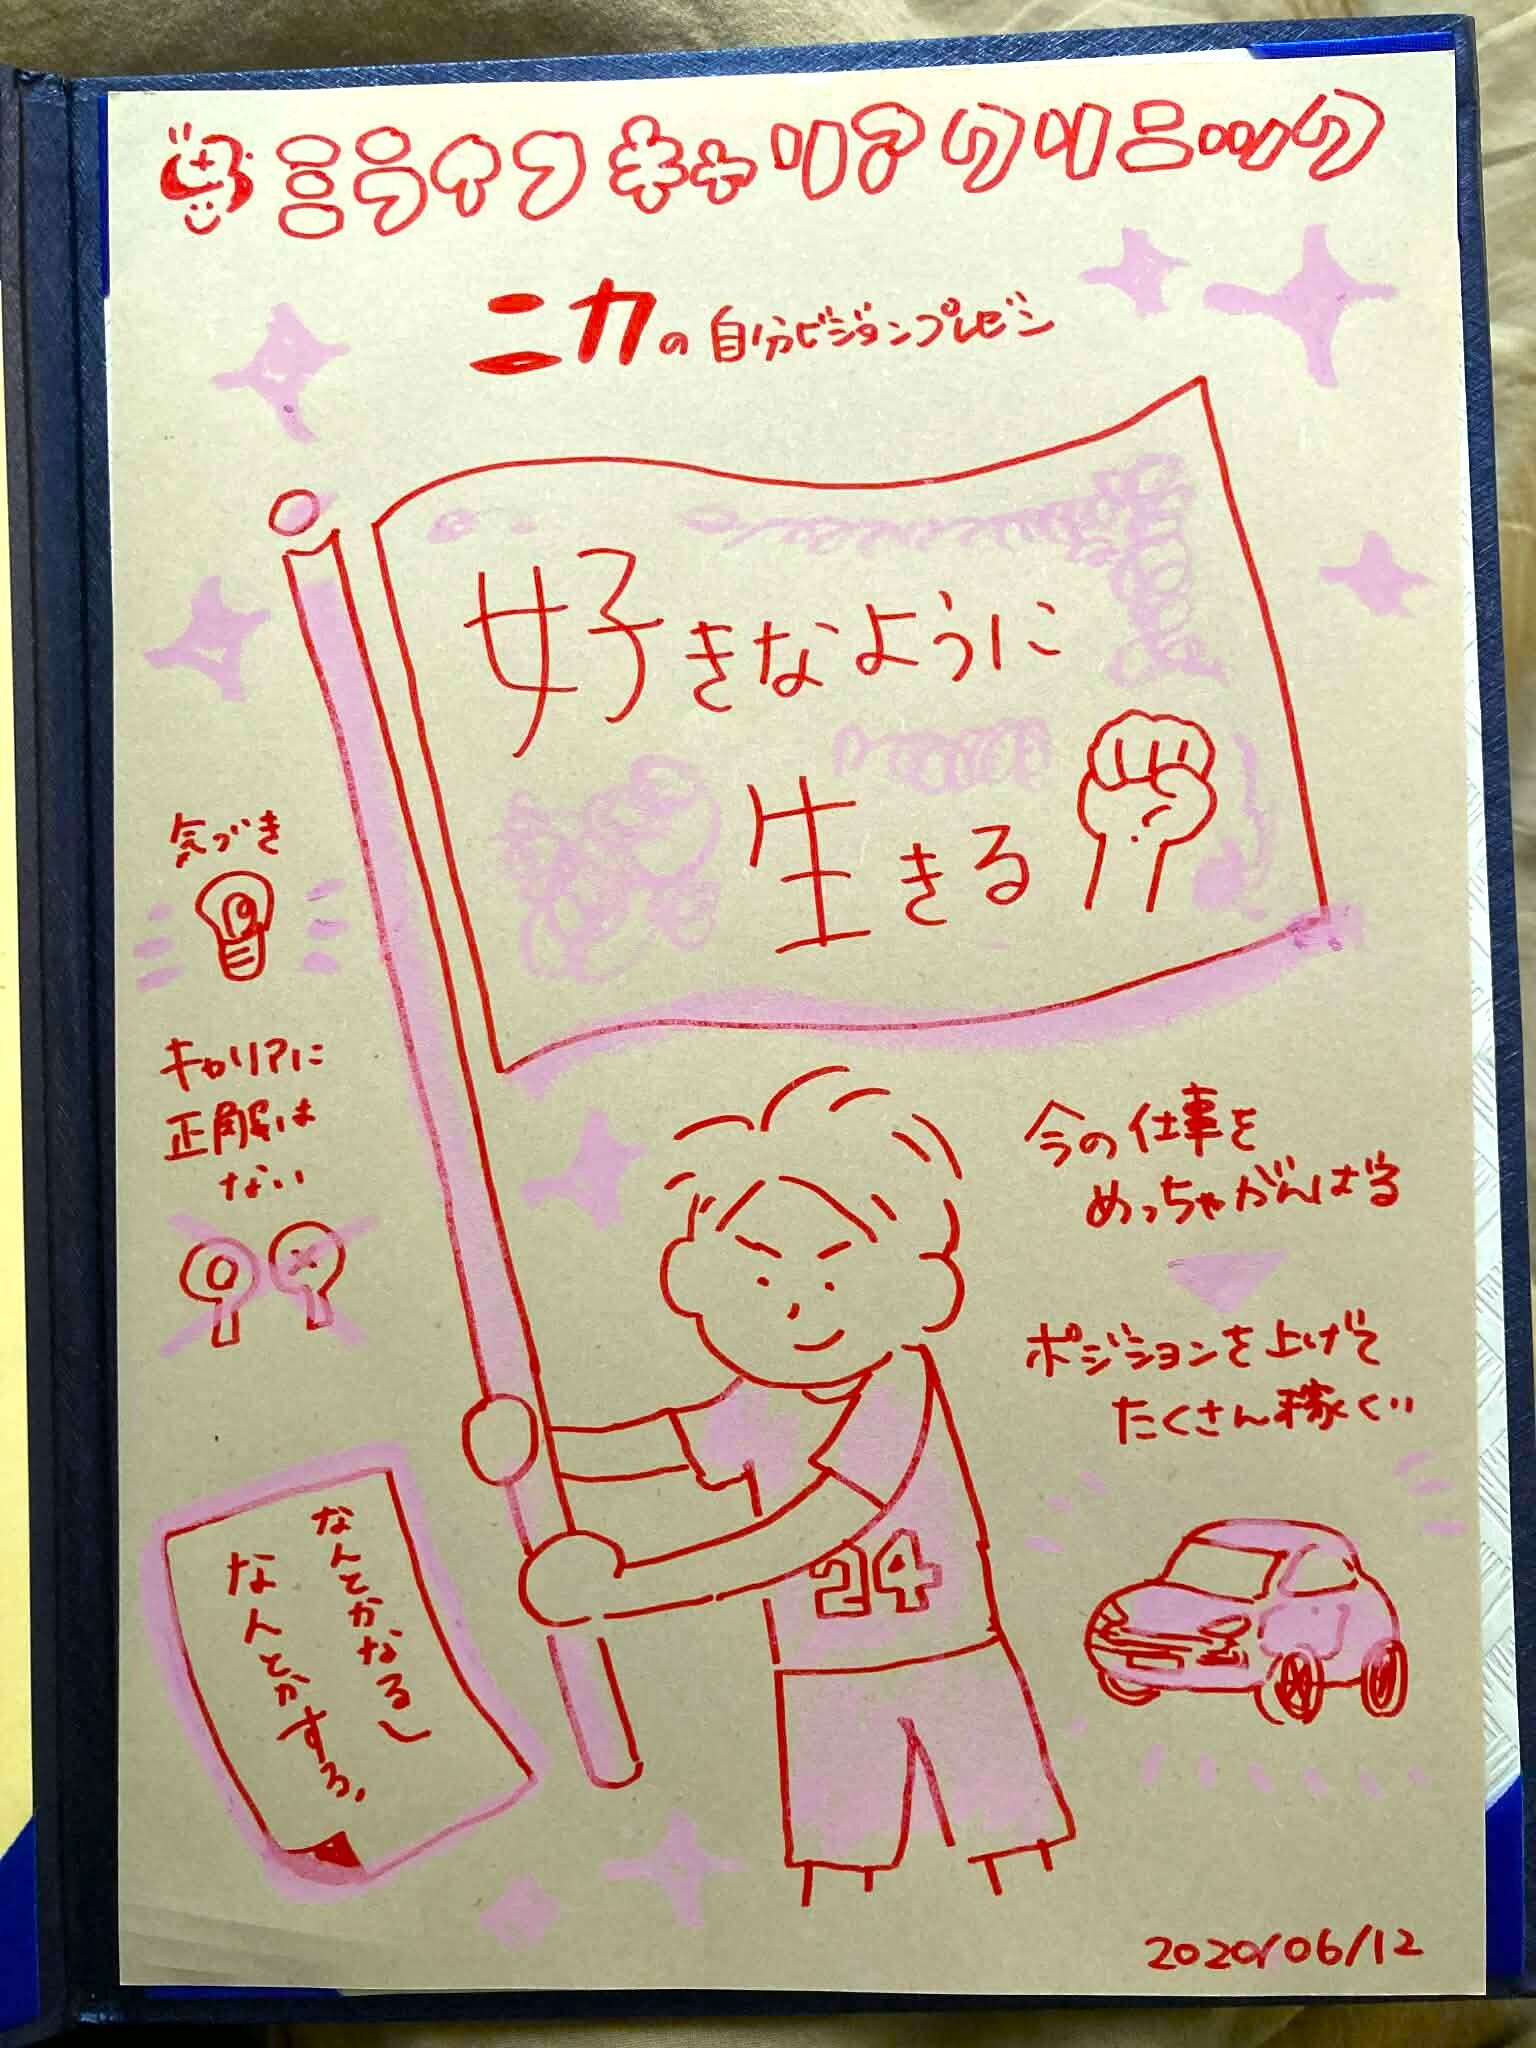 ミライフキャリアクリニック
ニカの自分ビジョンプレゼン
好きなように
生きる
気づき
キャリアに
正解は
ない
今の仕事を
めっちゃがんばる
ポジションを上げて
たくさん稼ぐ!!
24
なんとかなるし
なんとかする。
2020/06/12